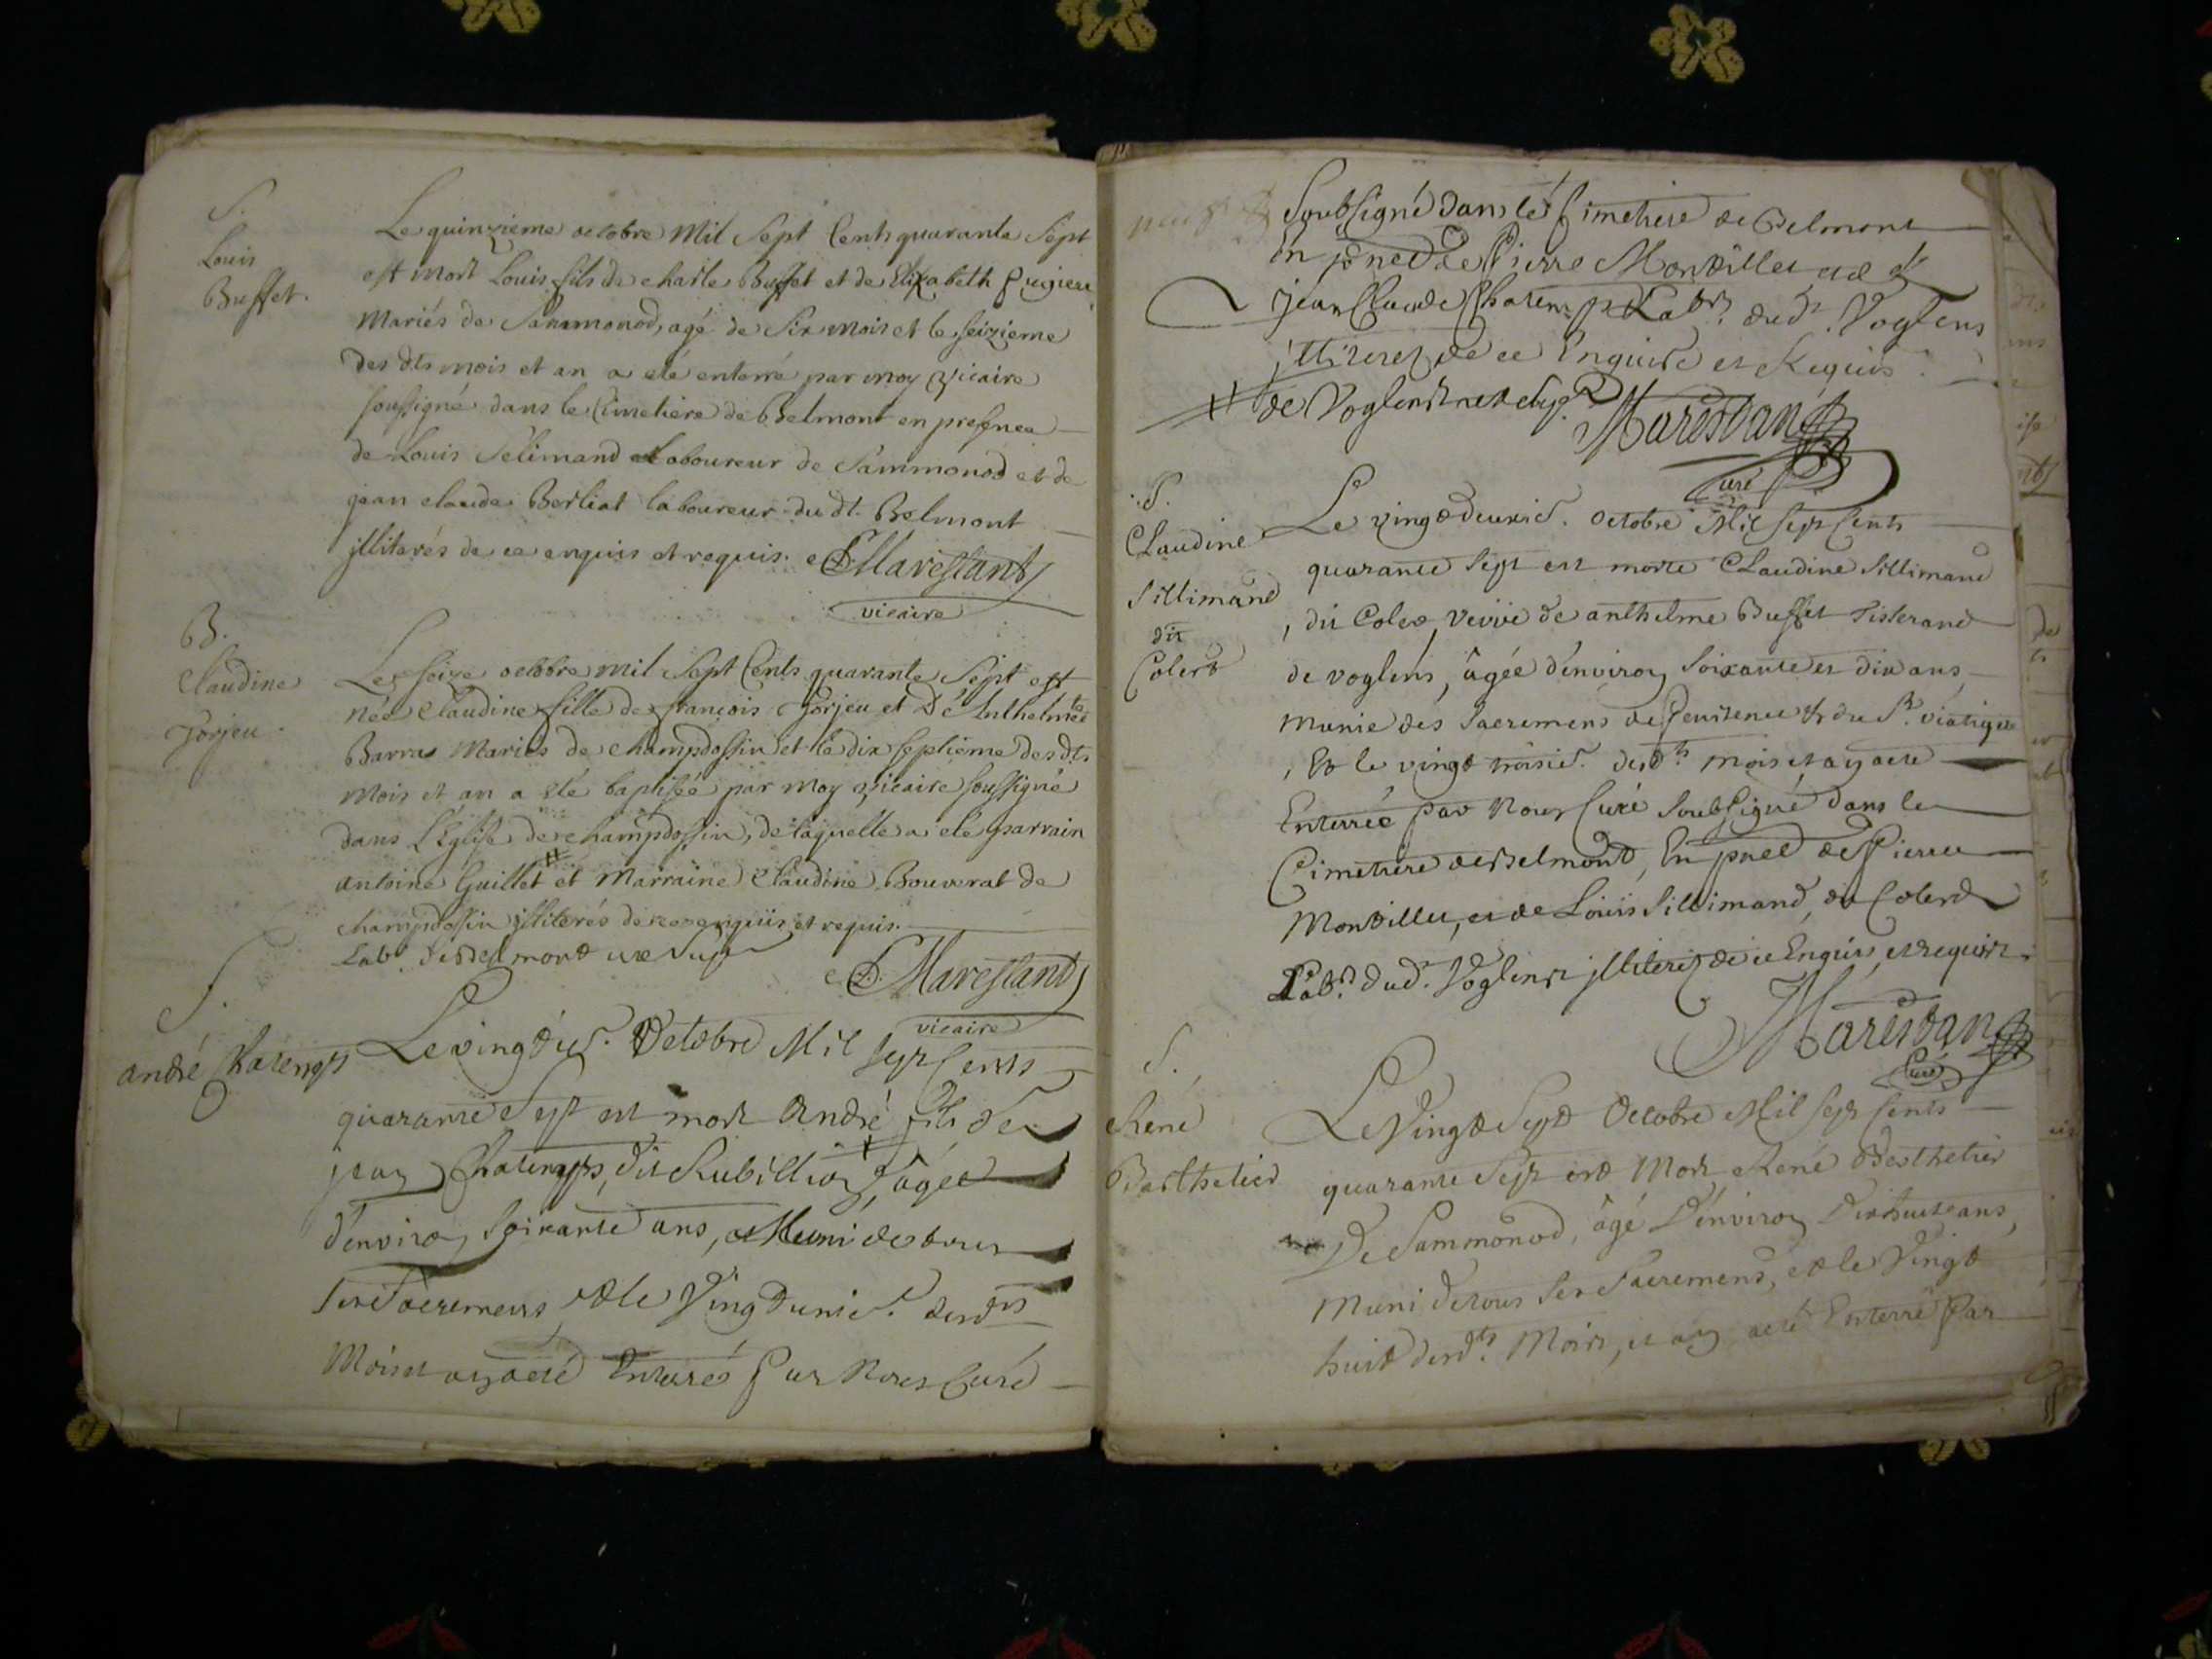 S.
Louis
Buffet.
Le quinzieme octobre Mil Sept Cents quarante Sept
est mort Louis fils de charle Buffet et de Elizabeth
Mariés de Sammonod, agé de Six mois et le seizieme
des dts mois et an a eté enterré par moy vicaire
soussigné dans le Cimetière de Belmont en presence
de Louis Selimand laboureur de Sammonod et de
jean claude Berliat laboureur du dt. Belmont
jlliterés de ce enquis et requis.
Marestant
vicaire
B.
Claudine
Jorjeu.
Le seize octobre mil Sept Cents quarante Sept est
née Claudine fille de françois Jorjeu et De Anthelmette
Barras Mariés de champdossin et le dix septieme des dts
Mois et an a eté baptisée par moy vicaire soussigné
dans l'Eglise de champdossin, de laquelle a eté parrain
antoine Guillet # et Marraine Claudine Bouverat de
champdossin jlliterés de ce enquis et requis.
Labr. de Belmont
Marestant
vicaire
S.
andré Chatenay
Le vingt. Octobre Mil Sept Cents
quarante Sept est mort André fils de
jean dit Rubillion, âgé
d'environ Soixante ans, Muni de tous
ses Sacremens, et le Vingt unie. desdts
Mois et an a eté Enterré Par Nous Curé
Soubsigné dans le Cimetiere de Belmont
En pnce de Pierre Montillet et de
jean Claude Labr. dudt. Voglens
jlliterez de ce Enquis et Requis.
# de Voglens
Marestan
Curé
S.
Claudine
Sillimand
dit
Colerd
Le vingt deuxie. octobre Mil Sept Cents
quarante Sept est morte Claudine Sillimand
, dit Coler, Veuve de anthelme Buffet Tisserand
de voglens, âgée d'environ Soixante et dix ans,
Munie des Sacremens de Penitence & du St. viatique
, Et le vingt troisie. desdts mois et an a eté
Enterrée par Nous Curé Soubsigné dans le
Cimetiere de Belmont, En pnce de Pierre
Montillet, et de Louis Sillimand, dit Colerd
Labr. dud. Voglens jlliterez de ce Enquis, et requis.
Marestan
Curé
S.
René
Berthelier
Le Vingt Sept Octobre Mil Sept Cents
quarante Sept est Mort René Berthelier
De Sammonod, âgé D'environ Dixhuit ans,
Muni de tous Ses Sacremens, et le Vingt
huit desdts. Mois, et an a eté Enterré Par